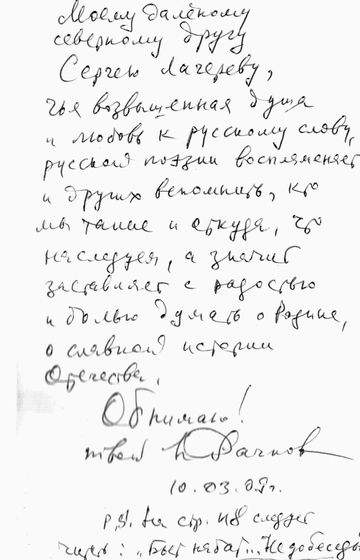 Моему далёкому
северному другу
Сергею Лагереву,
чья возвышенная душа
и любовь к русскому слову,
русской поэзии воспламеняет
и других вспомнить, кто
мы такие и откуда, что
наследуем, а значит
заставляет с радостью
и болью думать о Родине,
о славной истории
Отечества.
Обнимаю!
твой Н. Рачков
10.03.09г.
P.S. На стр. 118 следует
читать: „Быт набат...